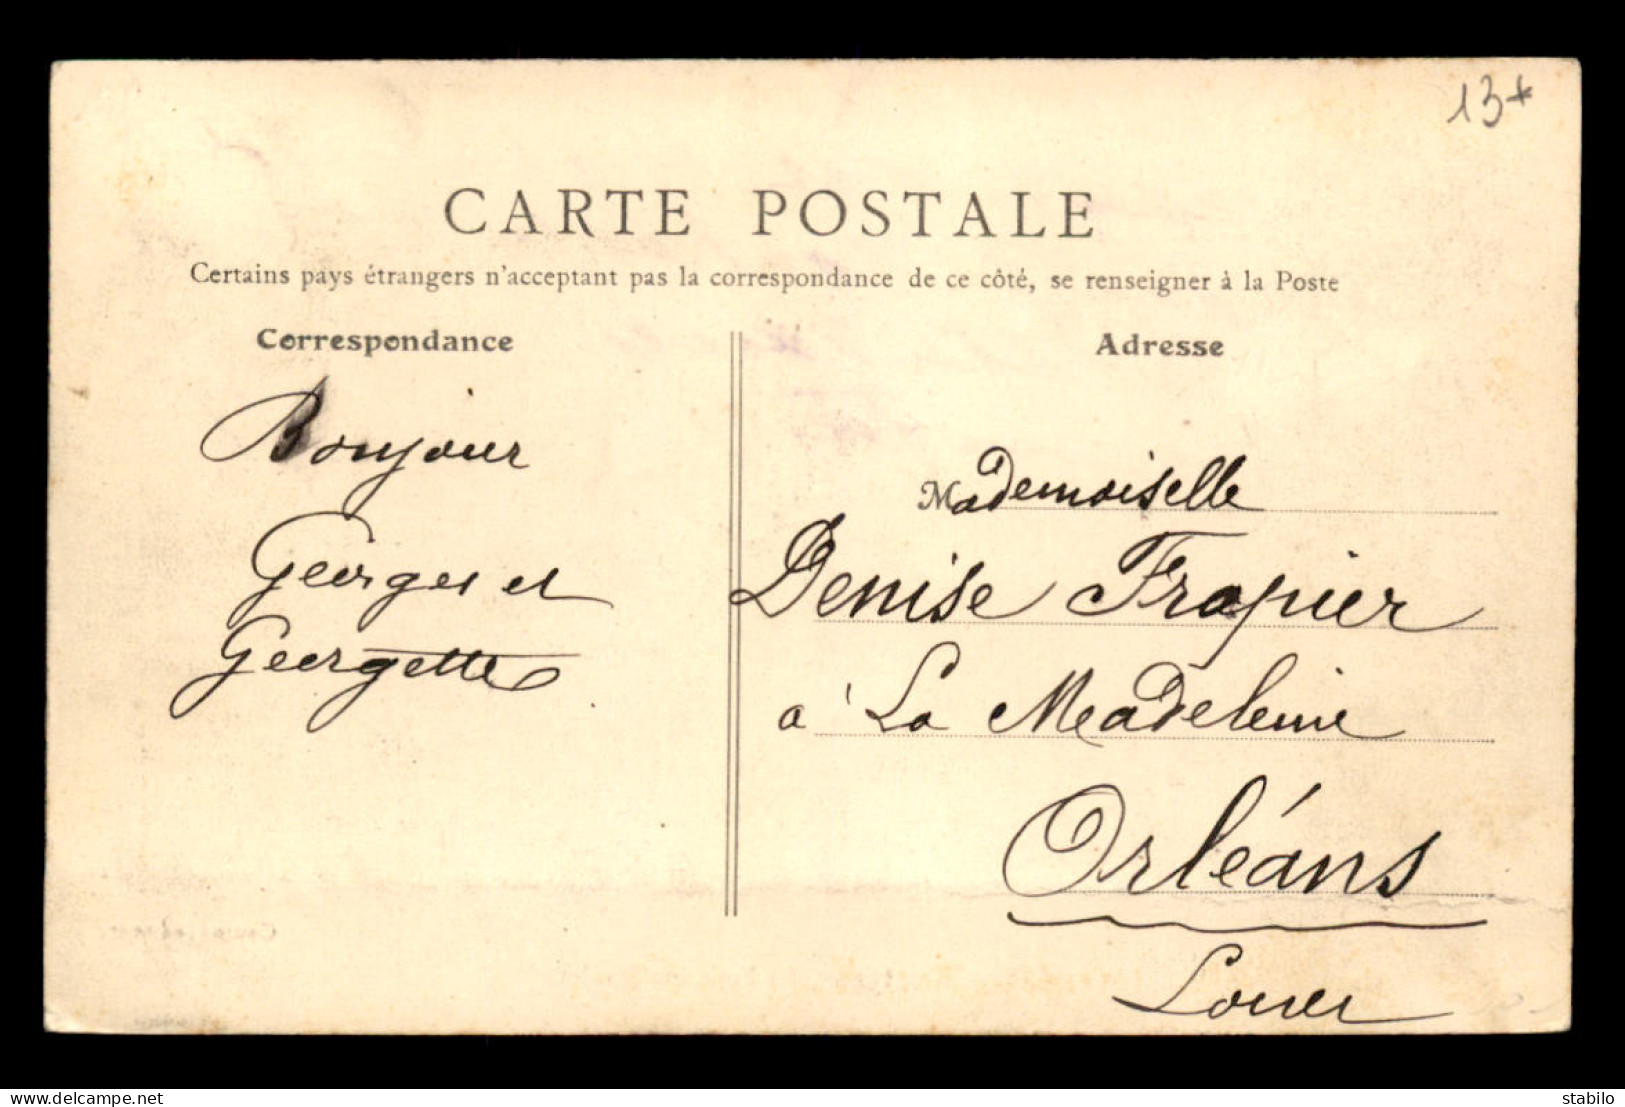 13*
CARTE POSTALE
Certains pays étrangers n'acceptant pas la correspondance de ce côté, se renseigner à la Poste
Correspondance
Bonjour
Georges et
Georgette
Adresse
Mademoiselle
Denise Frapier
à La Madeleine
Orléans
Loiret
delcampe.net
stabilo